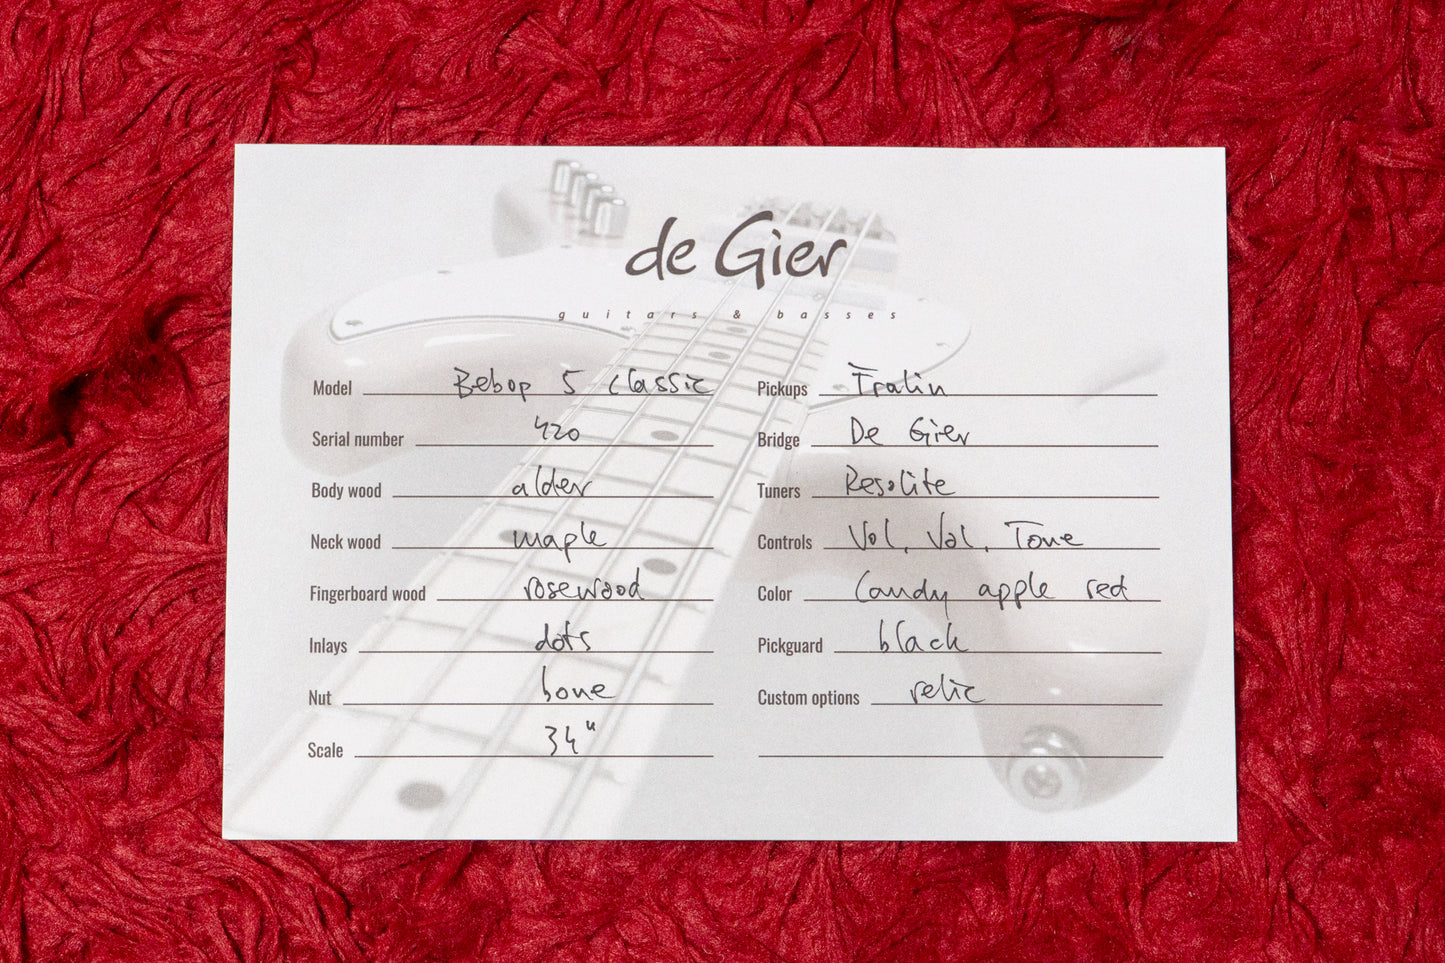 de Gier
guitars & basses
Model Bebop 5 classic
Serial number 420
Body wood alder
Neck wood maple
Fingerboard wood rosewood
Inlays dots
Nut bone
Scale 34"
Pickups Fralin
Bridge De Gier
Tuners Resolite
Controls Vol, Vol, Tone
Color Candy apple red
Pickguard black
Custom options relic